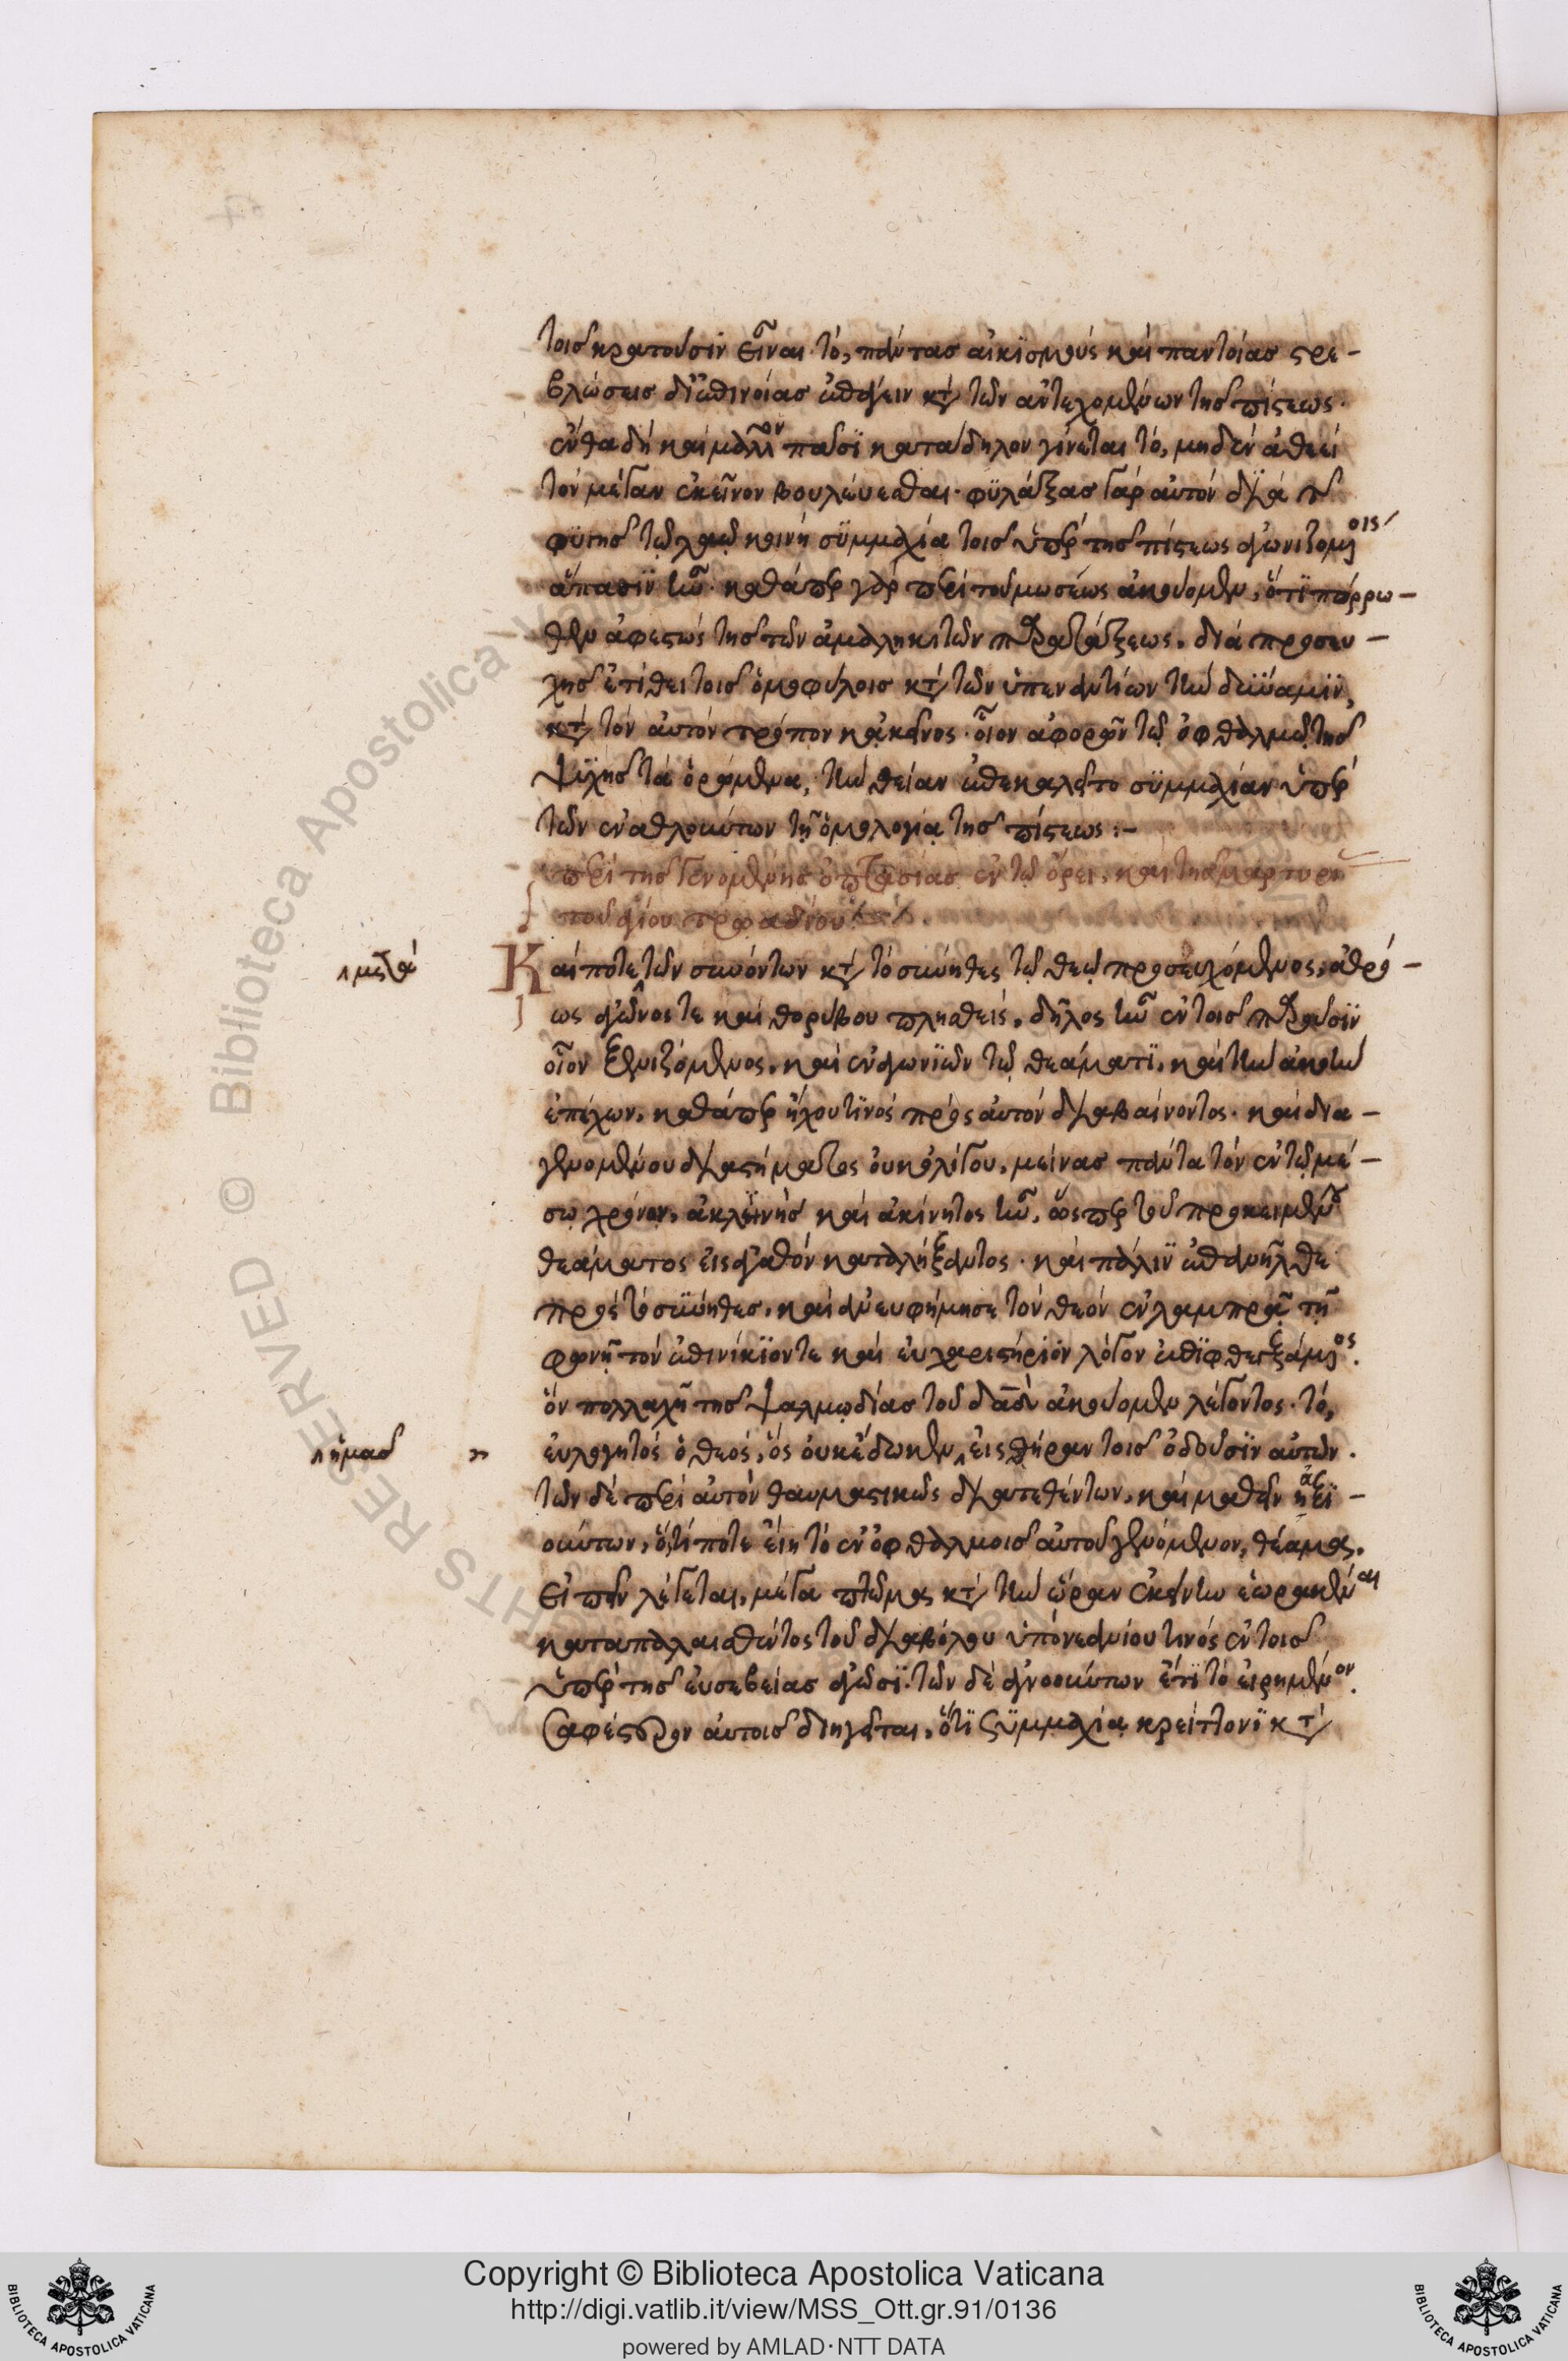 τοῖς κρατοῦσιν εἶναι τὸ, πάντας αἰκισμοὺς καὶ παντοίας στρε-
βλώσεις δι' ἐπινοίας ἐπάγειν κατὰ τῶν ἀντεχομένων τῆς πίστεως.
ἔνθα δὴ καὶ μᾶλλον πᾶσι κατάδηλον γίνεται τὸ, μηδὲν ἀθεεὶ
τὸν μέγαν ἐκεῖνον βουλεύεσθαι. φυλάξας γὰρ αὐτὸν διὰ τῆς
φυγῆς τῷ λαῷ κοινὴ συμμαχία τοῖς ὑπὲρ τῆς πίστεως ἀγωνιζομένοις
ἅπασιν ἦν. καθάπερ γὰρ περὶ τοῦ μωσέως ἀκούομεν, ὅτι πόρρω-
θεν ἀφεστὼς τῆς τῶν ἀμαληκιτῶν παρατάξεως, διὰ προσευ-
χῆς ἐτίθει τοῖς ὁμοφύλοις κατὰ τῶν ὑπεναντίων τὴν δύναμιν,
κατὰ τὸν αὐτὸν τρόπον κἀκεῖνος. οἷον ἀφορῶν τῷ ὀφθαλμῷ τῆς
ψυχῆς τὰ ὁρώμενα, τὴν θείαν ἐπεκαλεῖτο συμμαχίαν ὑπὲρ
τῶν ἐναθλούντων τῇ ὁμολογίᾳ τῆς πίστεως:-
περὶ τῆς γενομένης ὀπτασίας ἐν τῷ ὄρει, καὶ τῆς μαρτυρίου
τοῦ ἁγίου τρωαδίου
Καί ποτε τῶν συνόντων κατὰ τὸ σύνηθες τῷ θεῷ προσευχόμενος, ἀθρό-
ως ἀγῶνός τε καὶ θορύβου πλησθεὶς, δῆλος ἦν ἐν τοῖς παροῦσιν
οἷον ξενιζόμενος, καὶ ἐναγωνιῶν τῷ θεάματι, καὶ τὴν ἀκοὴν
ἐπέχων, καθάπερ ἤχου τινὸς πρὸς αὐτὸν διαβαίνοντος. καὶ δια-
γενομένου διαστήματος οὐκ ὀλίγου, μείνας πάντα τὸν ἐν τῷ μέ-
σῳ χρόνον, ἀκλινὴς καὶ ἀκίνητος ἦν, ὥσπερ τοῦ προκειμένου
θεάματος εἰς ἀγαθὸν καταλήξαντος. καὶ πάλιν ἐπανῆλθε
πρὸς τὸ σύνηθες, καὶ ἀνευφήμησε τὸν θεὸν ἐν λαμπρᾷ τῇ
φωνῇ τὸν ἐπινίκιόν τε καὶ εὐχαριστήριον λόγον ἐπιφθεγξάμενος.
ὃν πολλαχῇ τῆς ψαλμωδίας τοῦ δαδ ἀκούομεν λέγοντος. τὸ,
εὐλογητὸς ὁ θεός, ὃς οὐκ ἔδωκεν εἰς θήραν τοῖς ὀδοῦσιν αὐτῶν.
τῶν δὲ περὶ αὐτὸν θαυμαστικῶς διατεθέντων, καὶ μαθεῖν ἀξι-
ούντων, ὅτί ποτε εἴη τὸ ἐν ὀφθαλμοῖς αὐτοῦ γενόμενον, θέαμα.
Εἰπεῖν λέγεται, μέγα πτῶμα κατὰ τὴν ὥραν ἐκείνην ἑωρακέναι
καταπαλαισθέντος τοῦ διαβόλου ὑπὸ νεανίου τινὸς ἐν τοῖς
ὑπὲρ τῆς εὐσεβείας ἀγῶσι. τῶν δὲ ἀγνοούντων ἔτι τὸ εἰρημένον.
σαφέστερον αὐτοῖς διηγεῖται, ὅτι συμμαχίᾳ κρείττονι κατὰ
μετὰ
ἡμᾶς
Biblioteca Apostolica Vaticana
© Biblioteca Apostolica Vaticana
RIGHTS RESERVED
Copyright © Biblioteca Apostolica Vaticana
http://digi.vatlib.it/view/MSS_Ott.gr.91/0136
powered by AMLAD·NTT DATA
BIBLIOTECA APOSTOLICA VATICANA
BIBLIOTECA APOSTOLICA VATICANA